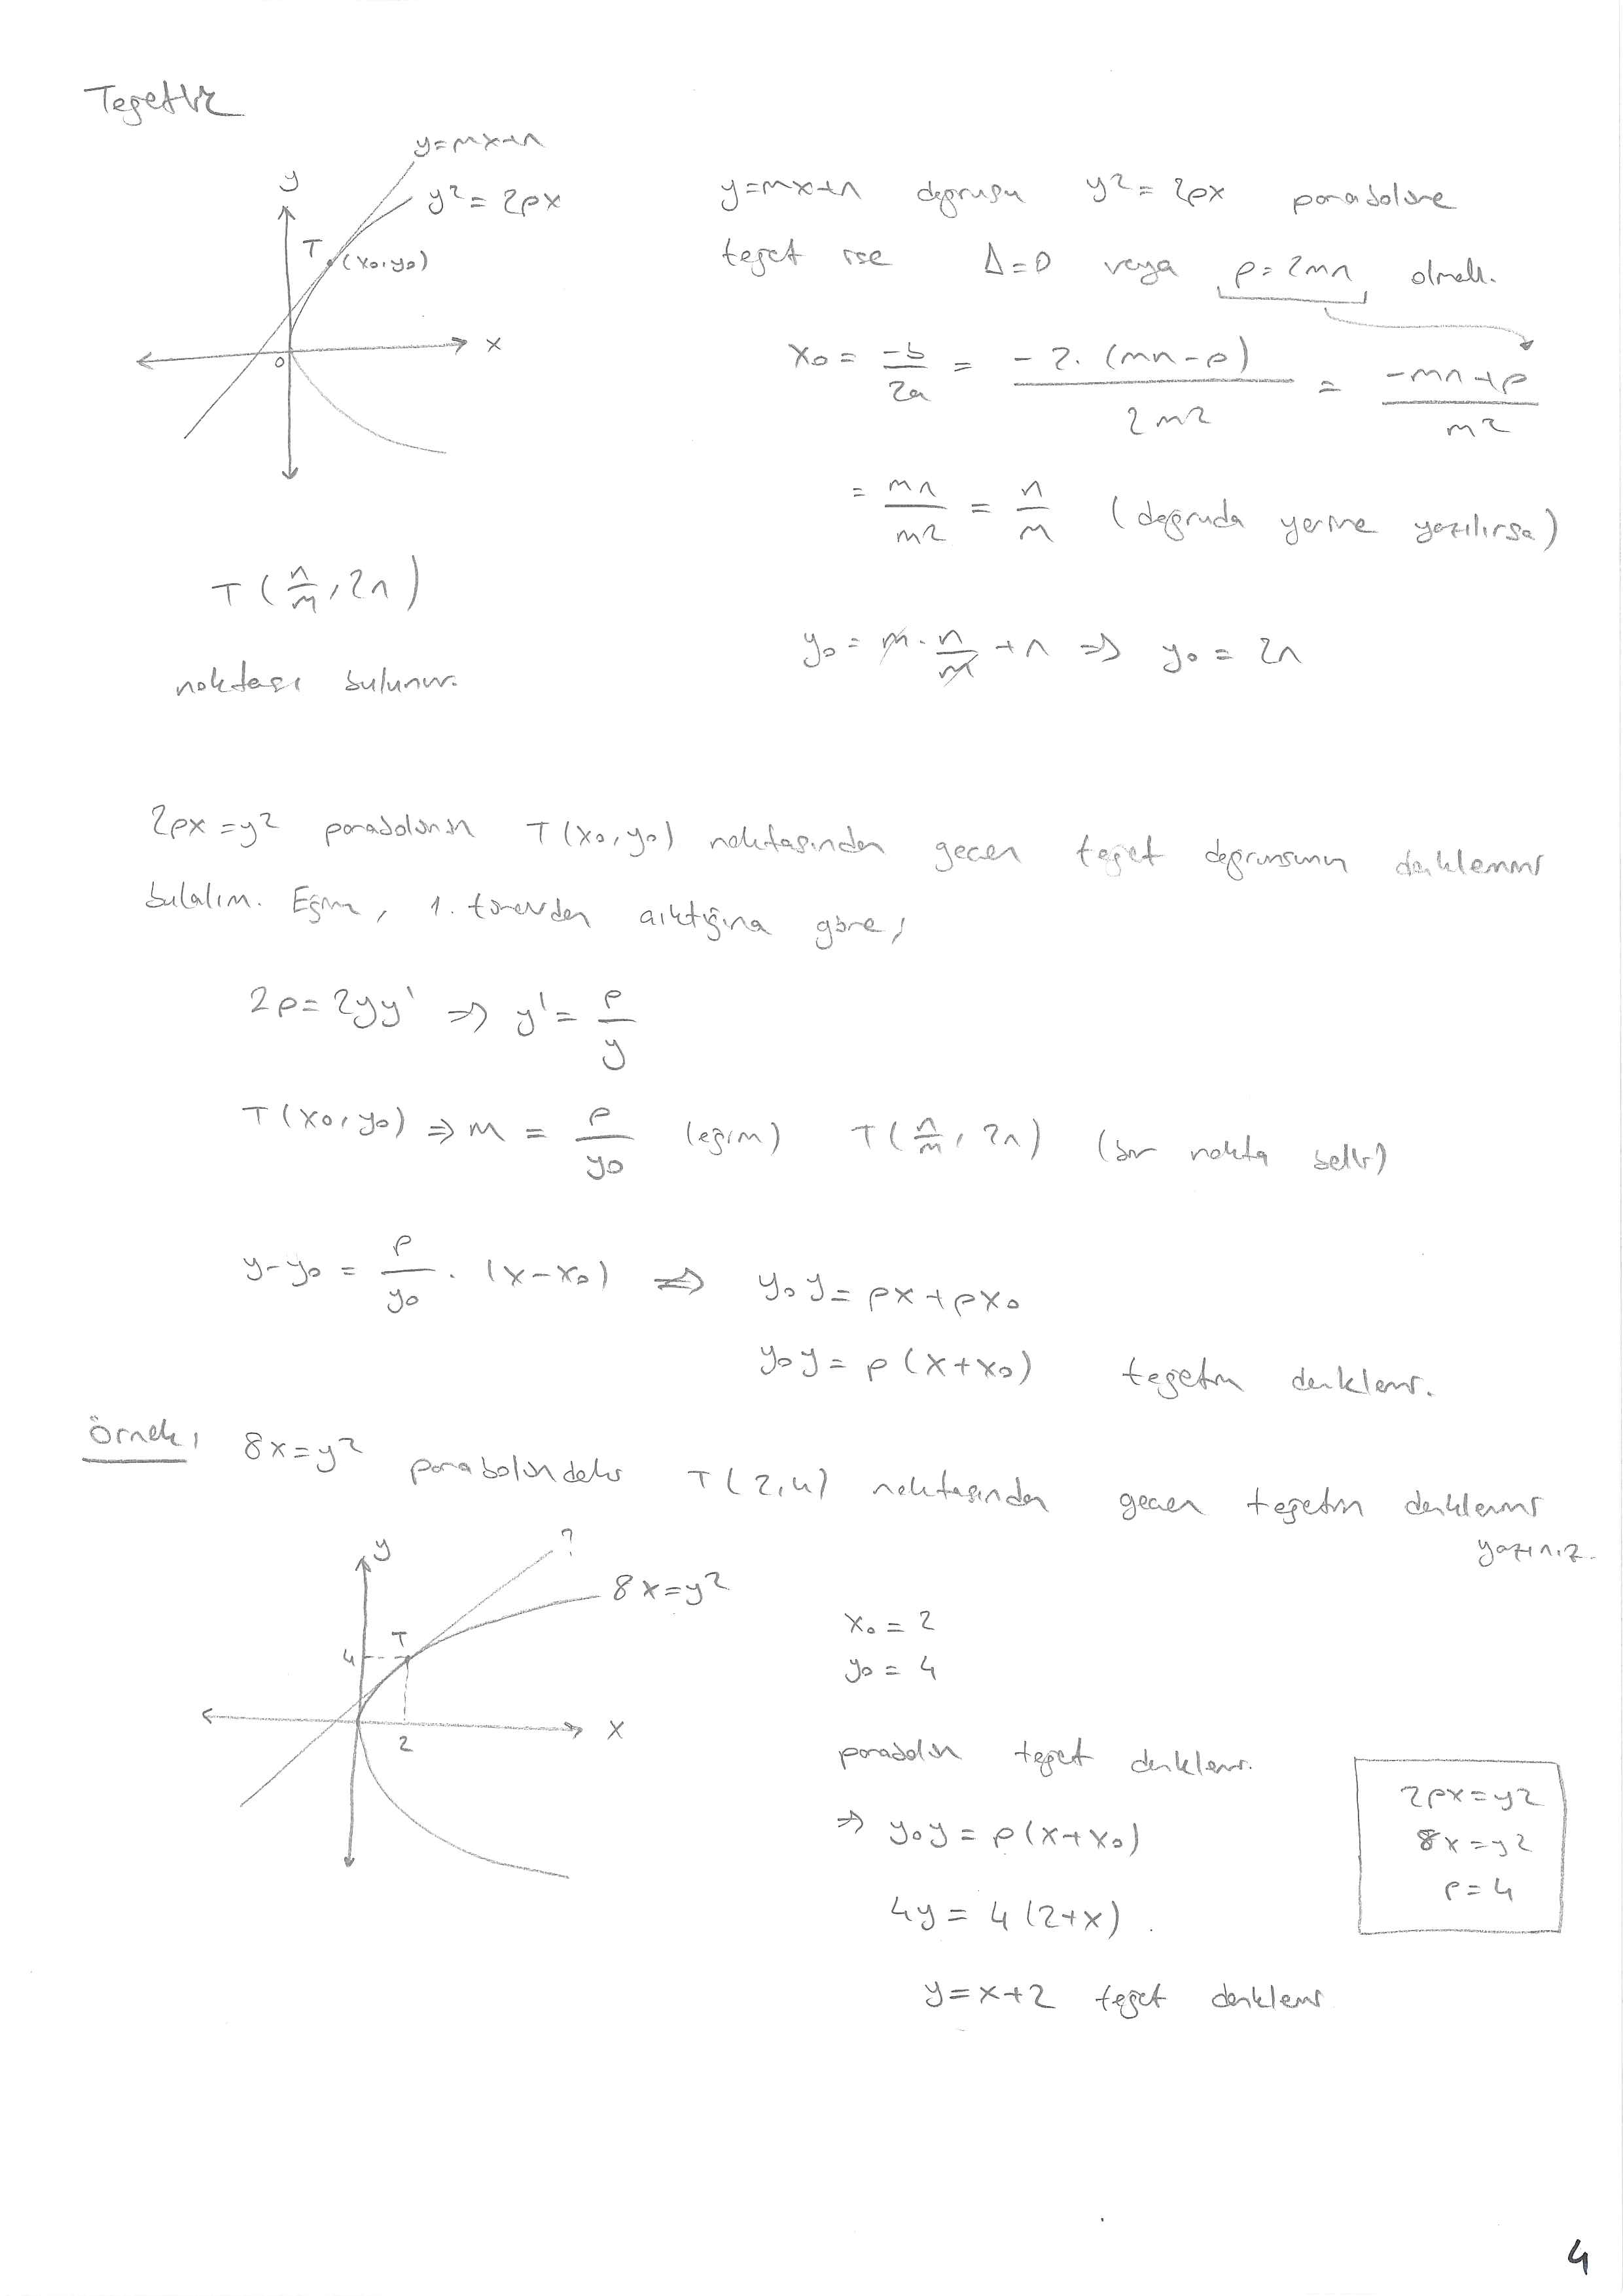 Teğetlik
y=mx+n
y
y² = 2px
T
(x₀,y₀)
x
0
y=mx+n doğrusu y² = 2px parabolüne
teğet ise Δ=0 veya p=2mn olmalı.
x₀ = -b/2a = -2.(mn-p)/2m² = -mn+p/m²
= mn/m² = n/m (doğruda yerine yazılırsa)
T(n/m, 2n)
y₀ = m.n/m + n ⇒ y₀ = 2n
noktası bulunur.
2px=y² parabolünün T(x₀,y₀) noktasından geçen teğet doğrusunun denklemini
bulalım. Eğim, 1. türevden çıktığına göre;
2p=2yy' ⇒ y' = p/y
T(x₀,y₀) ⇒ m = p/y₀ (eğim) T(n/m, 2n) (bir nokta belli)
y-y₀ = p/y₀ . (x-x₀) ⇒ y₀y = px+px₀
y₀y = p(x+x₀) teğetin denklemi.
Örnek; 8x=y² parabolündeki T(2,4) noktasından geçen teğetin denklemini
yazınız.
y
?
8x=y²
T
4
x
2
x₀ = 2
y₀ = 4
parabolün teğet denklemi.
⇒ y₀y = p(x+x₀)
4y = 4(2+x)
y=x+2 teğet denklemi
2px=y²
8x=y²
p=4
4